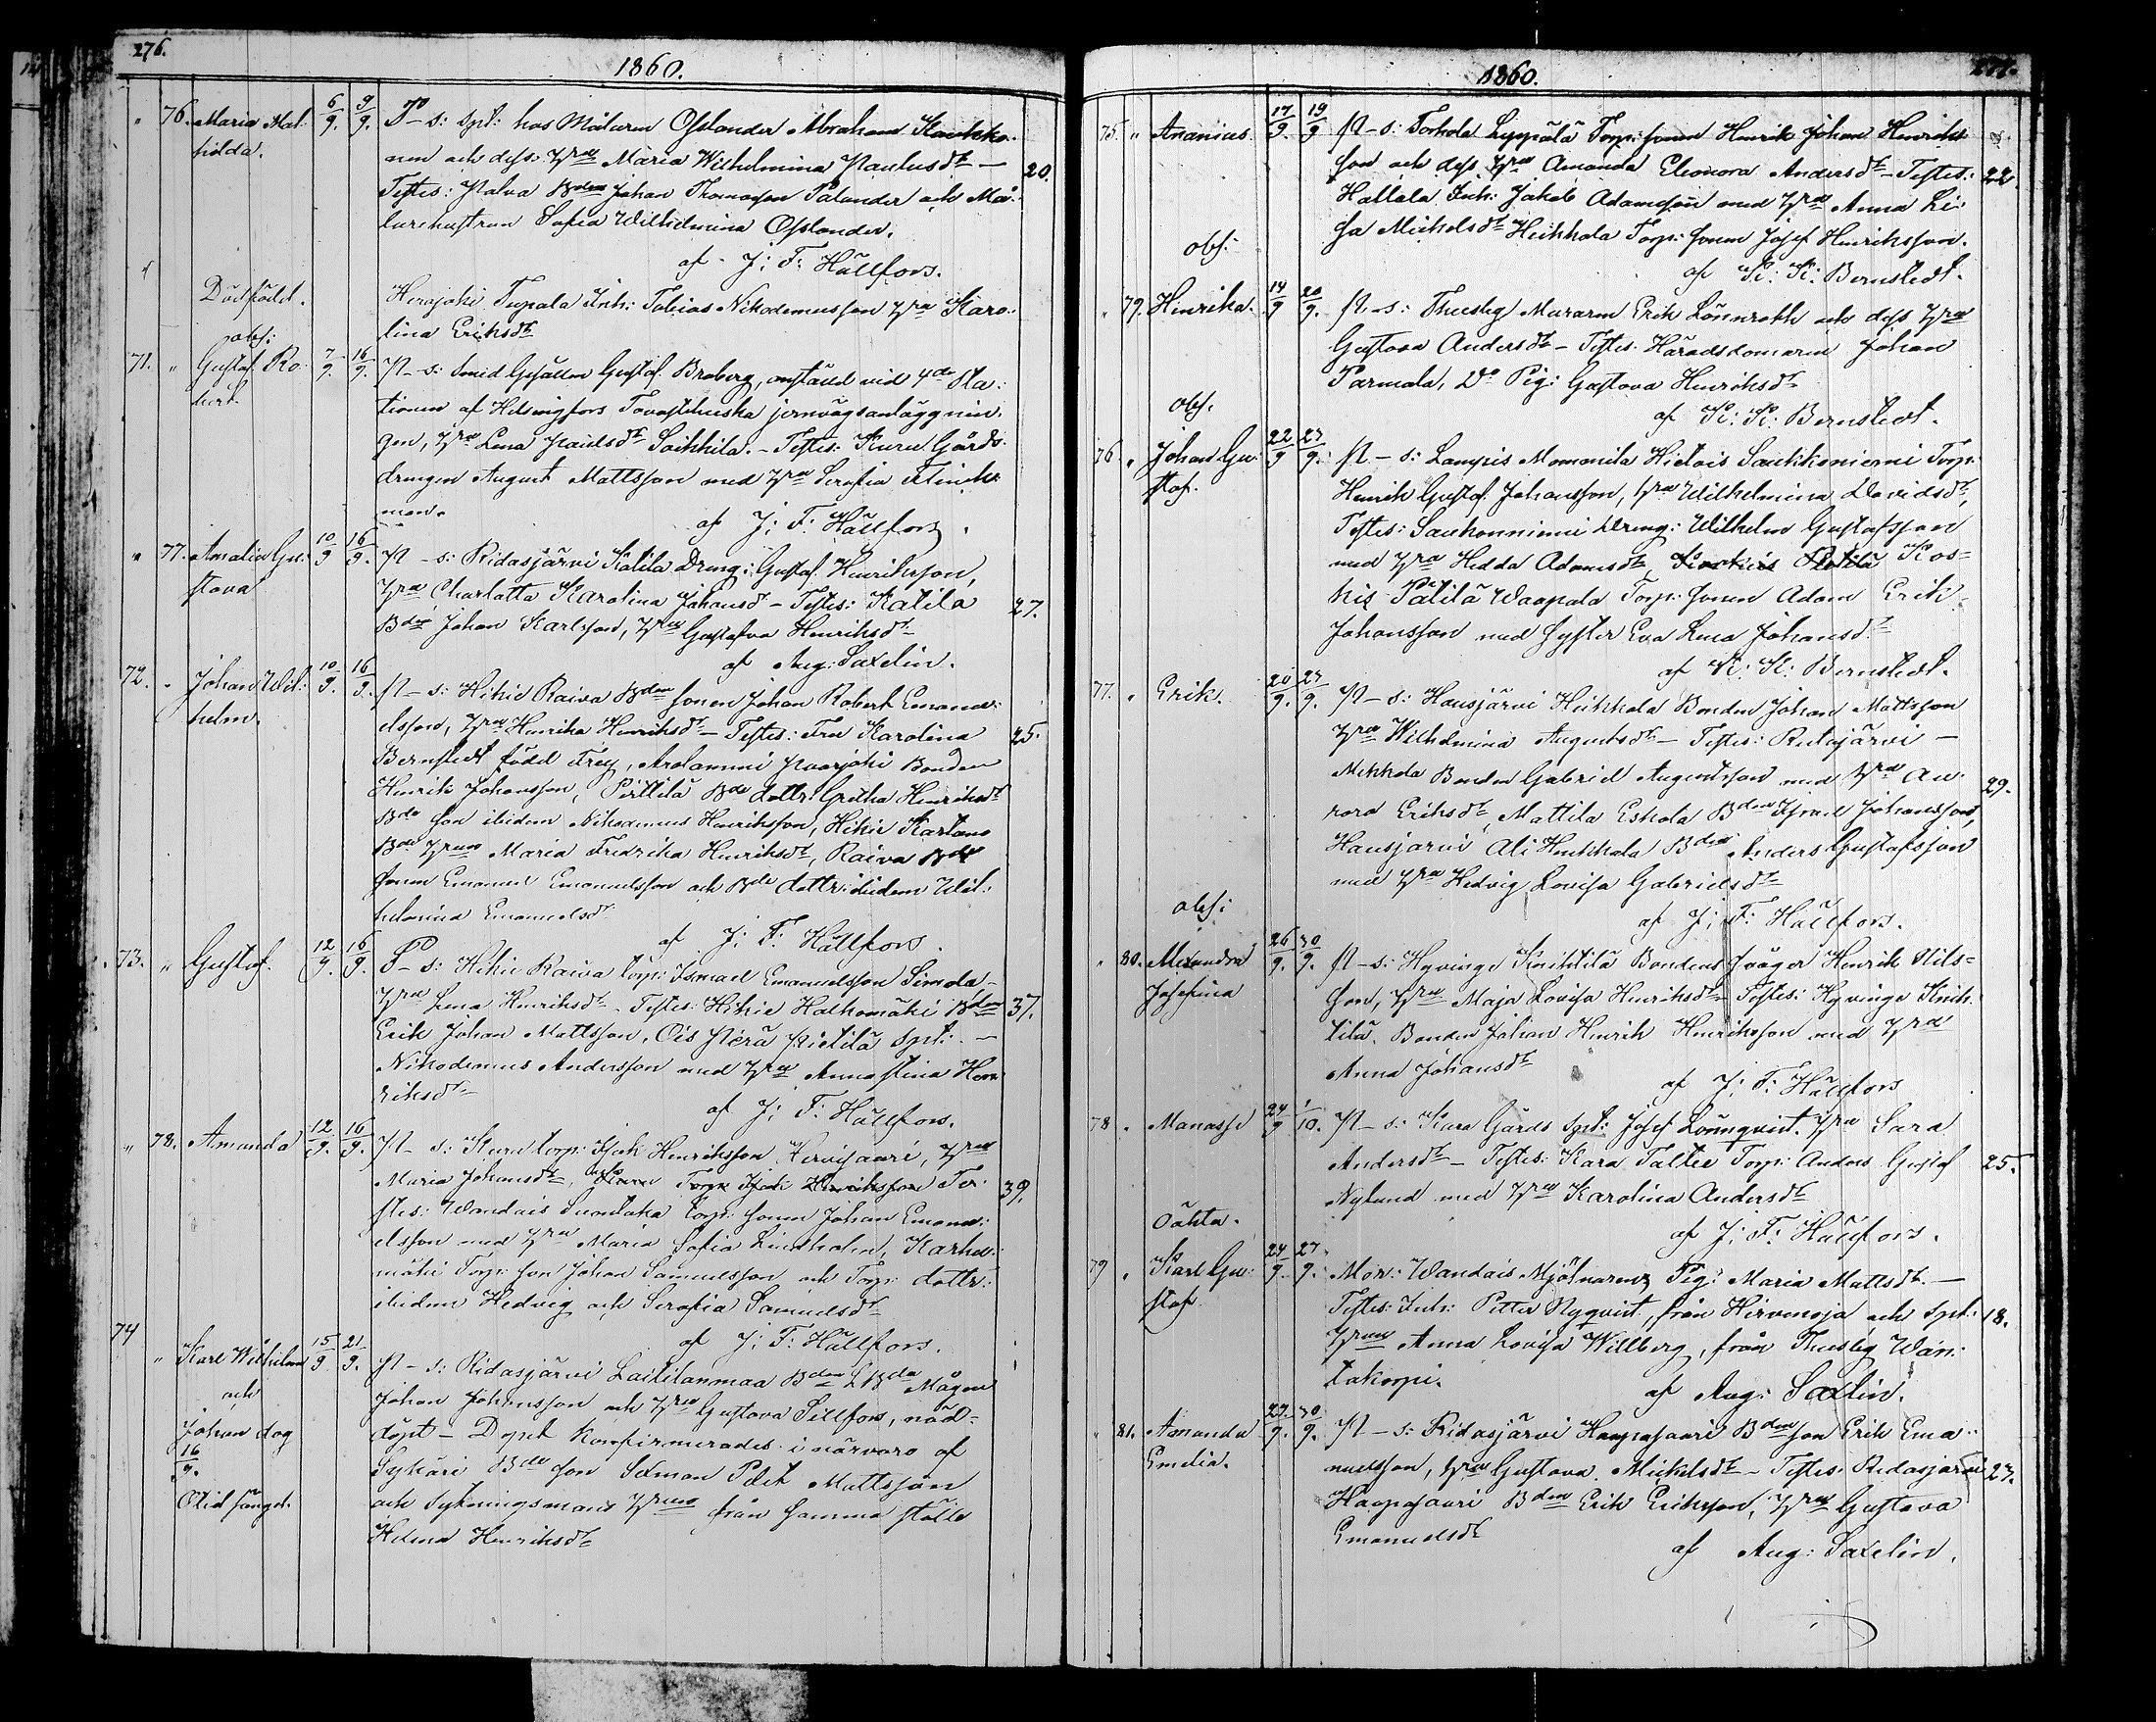 276.
1860.
76. Maria Mat: 6/9. 9/9. P- s: Spt: hos Målaren Osslander Abraham Kaukko-
hilda. nen och dess: hru Maria Wilhelmina Paulusdr — 20.
Testes: Johan Thomasson Palander och Må-
larehustrun Sofia Wilhelmina Osslander.
af J: F: Hällfors.
Dödfödd. Herajoki Inh: Tobias Nikodemusson hru Karo-
obs: lina Eriksdr
71. Gustaf Ro- 7/9. 16/9. P- s: Smed Gesällen Gustaf Broberg, anställd vid 4de Sta-
bert. tionen af Helsingfors Tavastehuska jernvägsanläggnin-
gen, hru Lena Soikkila. - Testes: Gårds-
drengen August Mattsson med hru Serafia Flinck-
man.
af J: F: Hällfors.
77. Amalia Gu- 10/9 16/9. P- s: Ridasjärvi Katila Dreng: Gustaf Henriksson,
stava hru Charlotta Karolina Johansdr - Testes: Katila 27.
Bden Johan Karlsson, hru Gustafva Henriksdr
af Aug: Saxelin.
72. Johan Wil- 10/9. 16/9. P- s: Hikie Raiva Bdesonen Johan Robert Emanu-
helm. elsson, hru Henrika Henriksdr - Testes: Fru Karolina 25.
Bernstedt född Frey, Arolammi Bonden
Henrik Johansson, Pirttilä Bde dottr: Gretha Henriksdr
Bde son ibidem Nikodemus Henriksson, Hikie
Bde hrun Maria Fredrika Henriksdr, Raiva Bde
sonen Emanuel Emanuelsson och Bde dottr: ibidem Wil-
helmina Emanuelsdr
af J: F: Hällfors.
73. Gustaf. 12/9. 16/9. P- s: Hikie Raiva torp: Ismael Emanuelsson Simola-
hru Lena Henriksdr - Testes: Hikie Halkomäki Bden 37.
Erik Johan Mattsson, Ois spt: —
Nikodemus Andersson med hru Anna Stina Hen-
riksdr
af J: F: Hällfors.
78. Amanda 12/9. 16/9. P- s: torp: Isak Henriksson Hervisaari, hru
Maria Johansdr, Torp: Isak Henriksson Te- 39.
stes: Wandais Suontaka torp: sonen Johan Emanu-
elsson med hru Maria Sofia Lindholm, Karhu-
mäki Torp: son Johan Samuelsson och Torp: dottr:
ibidem Hedvig och Serafia Samuelsdr
af J: F: Hällfors.
74 Karl Wilhelm 15/9 21/9. P- s: Ridasjärvi Laitilanmaa Bden Mågen
och Johan Johansson och hru Gustava Sillfors, nöd-
Johan dog döpt - Dopet konfirmerades i närvaro af
16/9. Sykäri Bde son Salomon Mattsson
och Sykningsmans hrun från samma ställe
Otid sängd. Helena Henriksdr
277.
1860.
75. Ananias 17/9. 19/9 P- s: Torhola Lyppälä Torp: sonen Henrik Johan Henriks-
son och dess hru Amanda Eleonora Andersdr - Testes: 22.
Hallala Inh: Jakob Adamsson med hru Anna Li-
sa Mickelsdr Heikkola Torp: sonen Josef Henriksson.
obs: af K: K: Bernstedt.
79. Henrika. 14/9 20/9. P- s: Thusby Muraren Erik Lönnroth och dess hru
Gustava Andersdr - Testes: Häradsdomaren Johan
Parmala, Do Pig: Gustava Henriksdr
obs. af K: K: Bernstedt.
76. Johan Gu- 22/9 23/9. P- s: Lampis Momonila Hietois Saukkoniemi Torp:
staf. Henrik Gustaf Johansson, hru Wilhelmina Davidsdr,
Testes: Saukonniemi Dreng: Wilhelm Gustafsson
med hru Hedda Adamsdr, Kos-
kis Pätilä Waapala Torp: sonen Adam Erik
Johansson med syster Eva Lena Johansdr
af K: K: Bernstedt.
77. Erik. 20/9. 23/9. P- s: Hausjärvi Heikkola Bonden Johan Mattsson
hru Wilhelmina Augustsdr - Testes: Rutajärvi -
Mikkola Bonden Gabriel Augustsson med hru Au- 29.
rora Eriksdr, Mattila Eskola Bden Johansson,
Hausjärvi Ali Heikkala Bden Anders Gustafsson
med hru Hedvig Lovisa Gabrielsdr
obs: af J: F: Hällfors.
80. Alexandra 26/9. 30/9. P- s: Hyvinge Knihtilä Bondens Svåger Henrik Nils-
Josefina son, hru Maja Lovisa Henriksdr - Testes: Hyvinge Knih-
tilä Bonden Johan Henrik Henriksson med hru
Anna Johansdr
af J: F: Hällfors
78 Manasse 24/9 1/10. P- s: Kara Gårds Spt: Josef Lönnqvist. hru Sara
Andersdr - Testes: Kara Taltee Torp: Anders Gustaf 25.
Nylund med hru Karolina Andersdr
Oäkta. af J: F: Hällfors.
79 Karl Gu- 24/9. 27/9. Mor: Wandais Mjölnarens Pig: Maria Mattsdr. —
staf Testes: Inh: Petter Nyqvist, från Hirvenoja och Spt: 18.
hrun Anna Lovisa Willberg, från Thusby Wan-
takorpi. af Aug: Saxelin.
81. Amanda 27/9. 30/9. P- s: Ridasjärvi Haapasaari Bdeson Erik Ema-
Emelia. nuelsson, hru Gustava Mickelsdr - Testes: Ridasjärvi 23.
Haapasaari Bden Erik Eriksson, hru Gustava
Emanuelsdr af Aug: Saxelin.